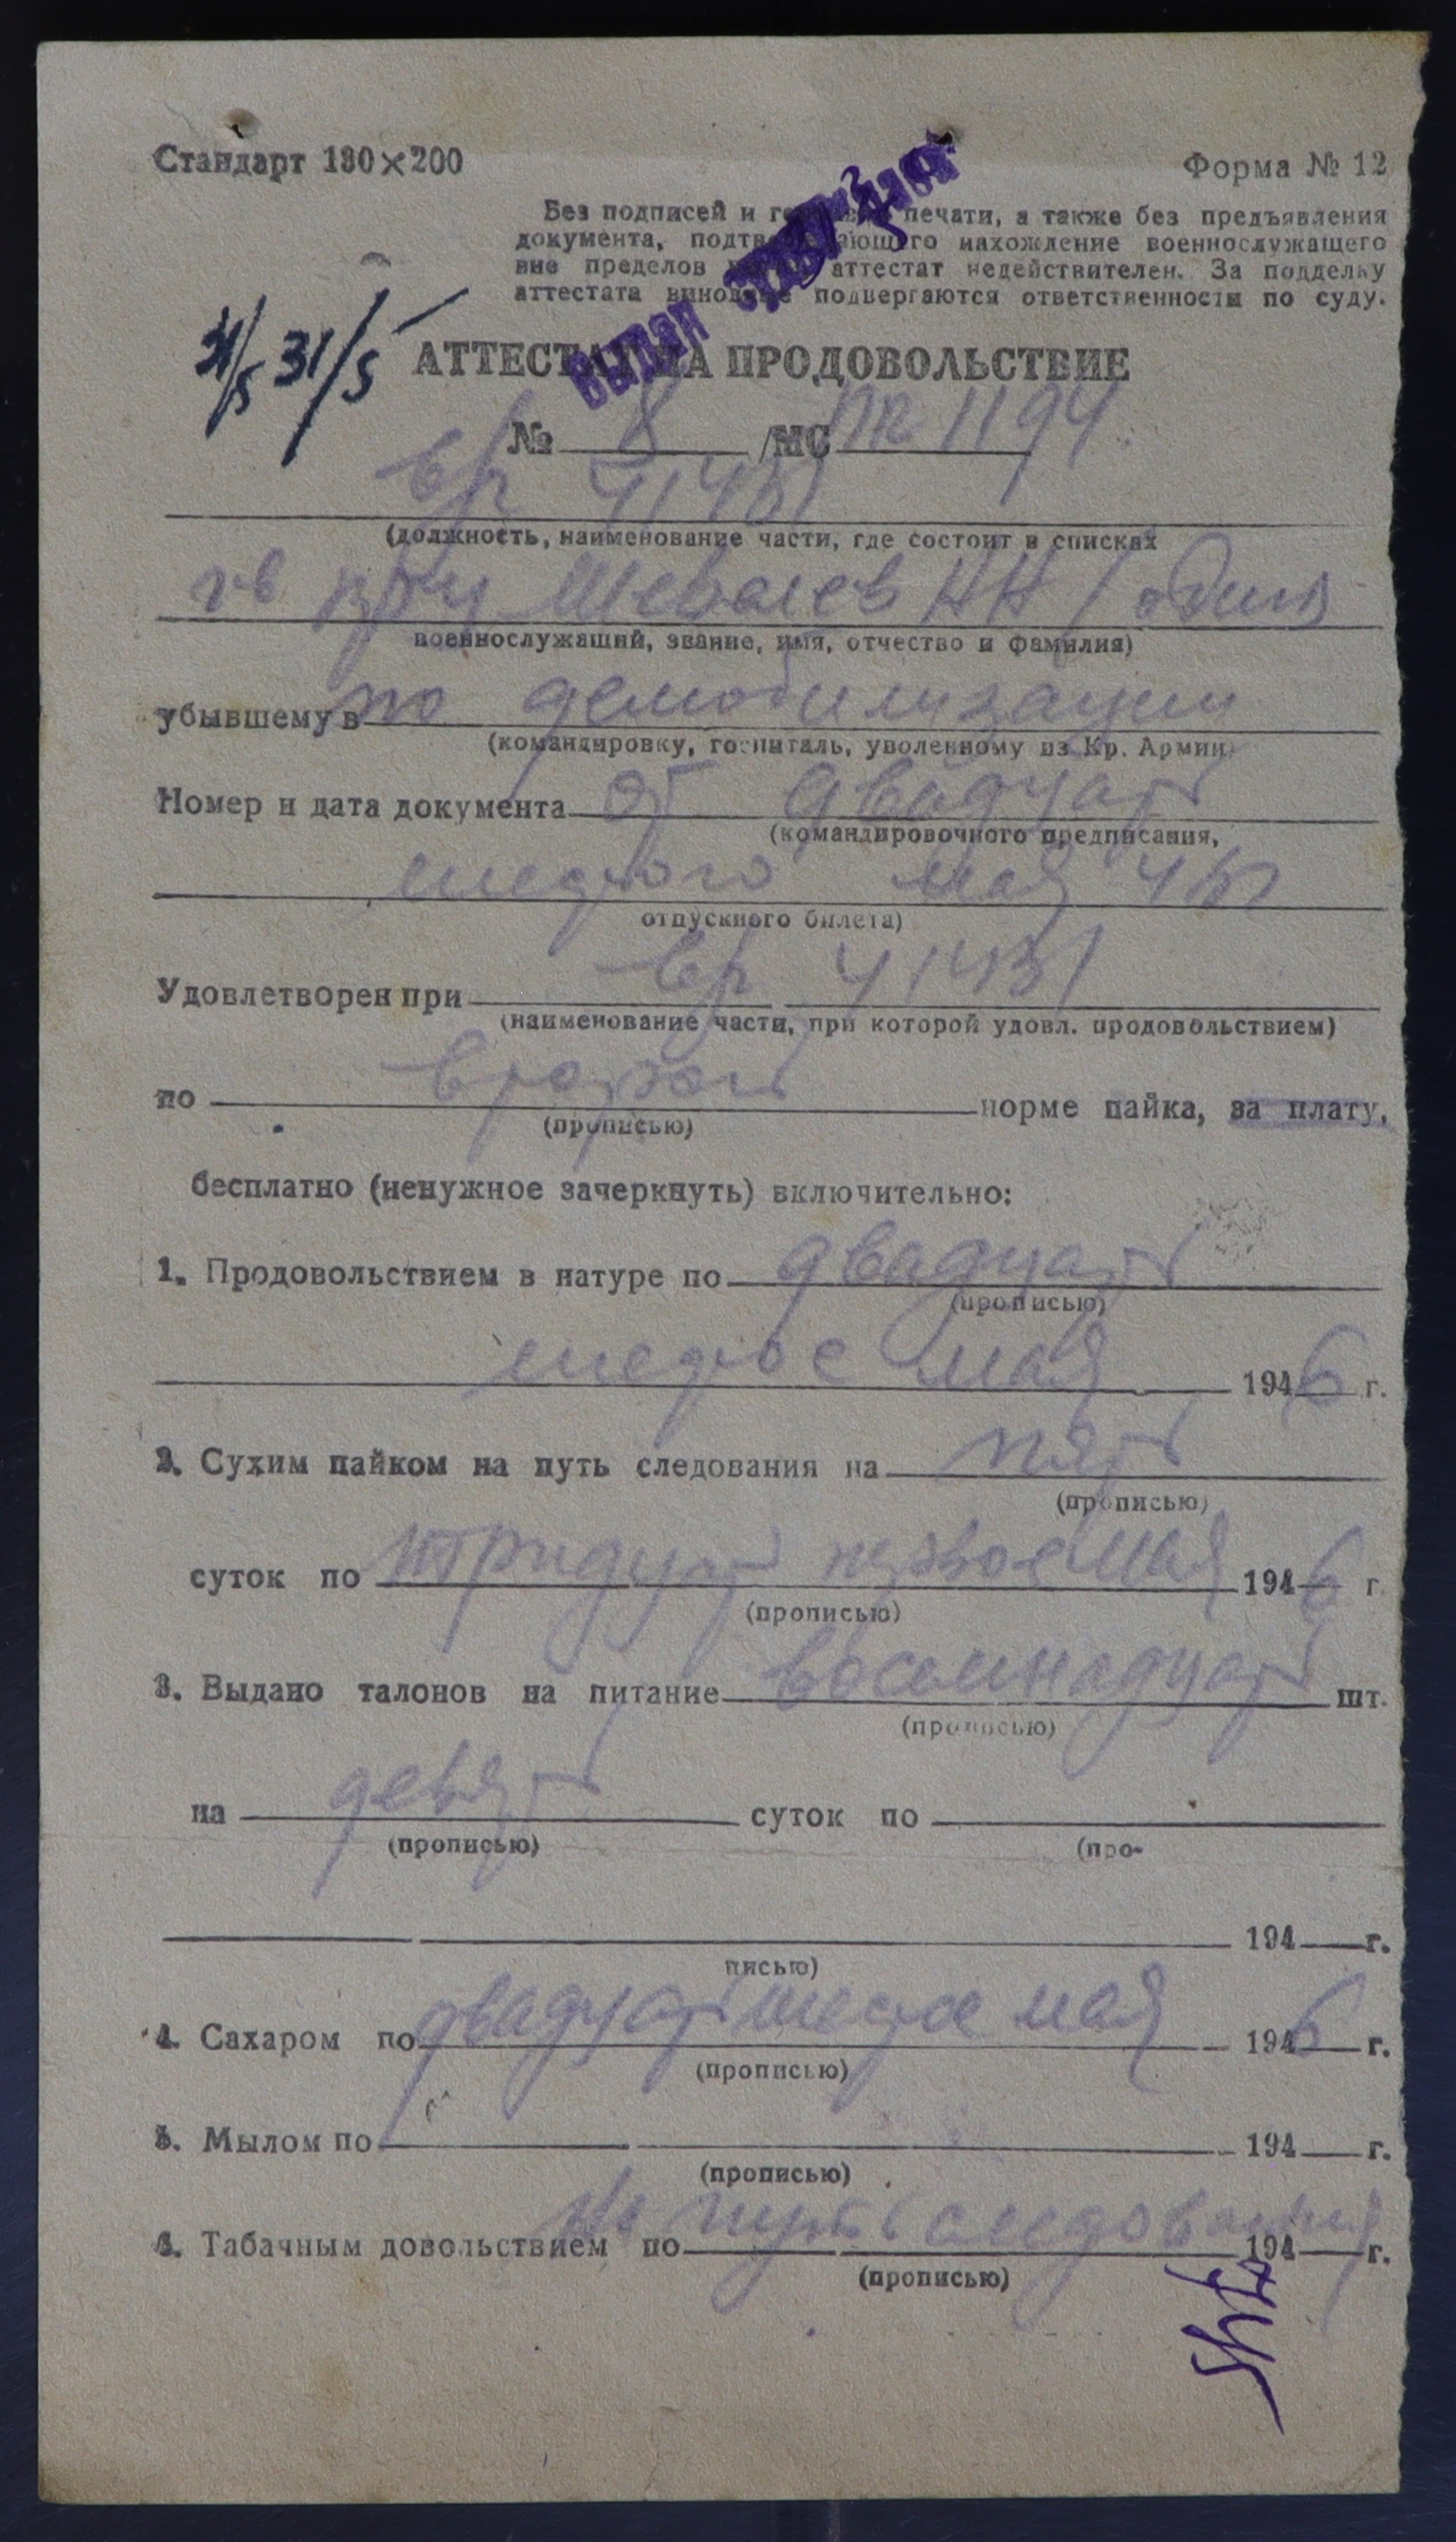 Стандарт 130×200
Форма № 12
Без подписей и гербовой печати, а также без предъявления
документа, подтверждающего нахождение военнослужащего
вне пределов части аттестат недействителен. За подделку
аттестата виновные подвергаются ответственности по суду.
31/5 31/5
Выдан
АТТЕСТАТ НА ПРОДОВОЛЬСТВИЕ
№ 8 /МС 1194
вр 41451
(должность, наименование части, где состоит в списках
гв Шевалев НН / один
военнослужащий, звание, имя, отчество и фамилия)
убывшему в по демобилизации
(командировку, госпиталь, уволенному из Кр. Армии)
Номер и дата документа от двадцать
(командировочного предписания,
шестого мая 46
отпускного билета)
Удовлетворен при вр 41451
(наименование части, при которой удовл. продовольствием)
по второй норме пайка, за плату,
(прописью)
бесплатно (ненужное зачеркнуть) включительно:
1. Продовольствием в натуре по двадцать
(прописью)
шестое мая 1946 г.
2. Сухим пайком на путь следования на пять
(прописью)
суток по тридцать первое мая 1946 г
(прописью)
3. Выдано талонов на питание восемнадцать шт.
(прописью)
на девять суток по
(прописью) (про-
194 г.
писью)
4. Сахаром по двадцать шестое мая 1946 г.
(прописью)
5. Мылом по 194 г.
(прописью)
6. Табачным довольствием по на путь следования 194 г.
(прописью)